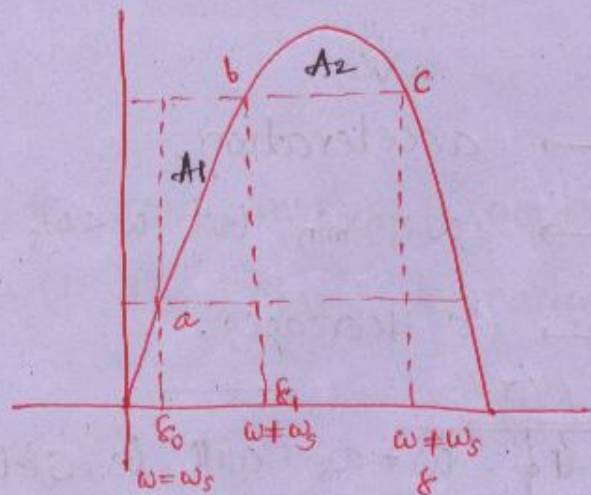 b A2 c
A1
a
δ0 δ1
ω≠ωs ω≠ωs
ω=ωs δ